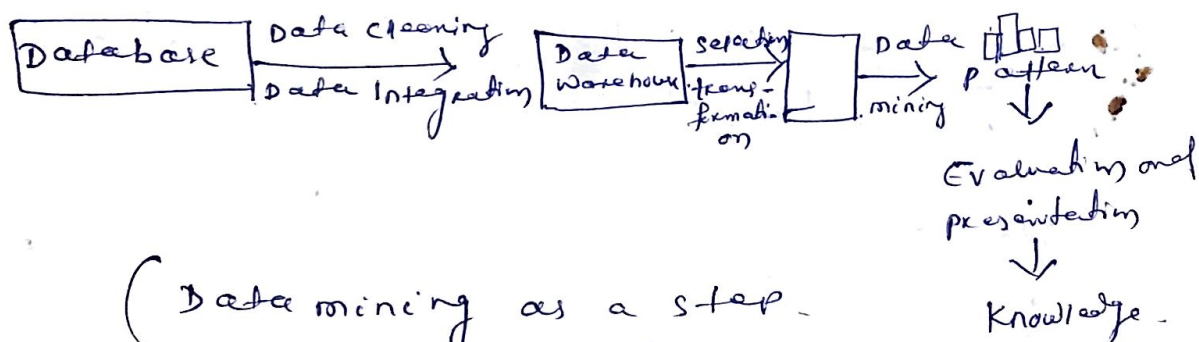 Database
Data cleaning
Data Integration
Data
Warehouse
selection
trans-
formati-
on
Data
mining
pattern
Evaluation and
presentation
Knowledge.
(Data mining as a step.